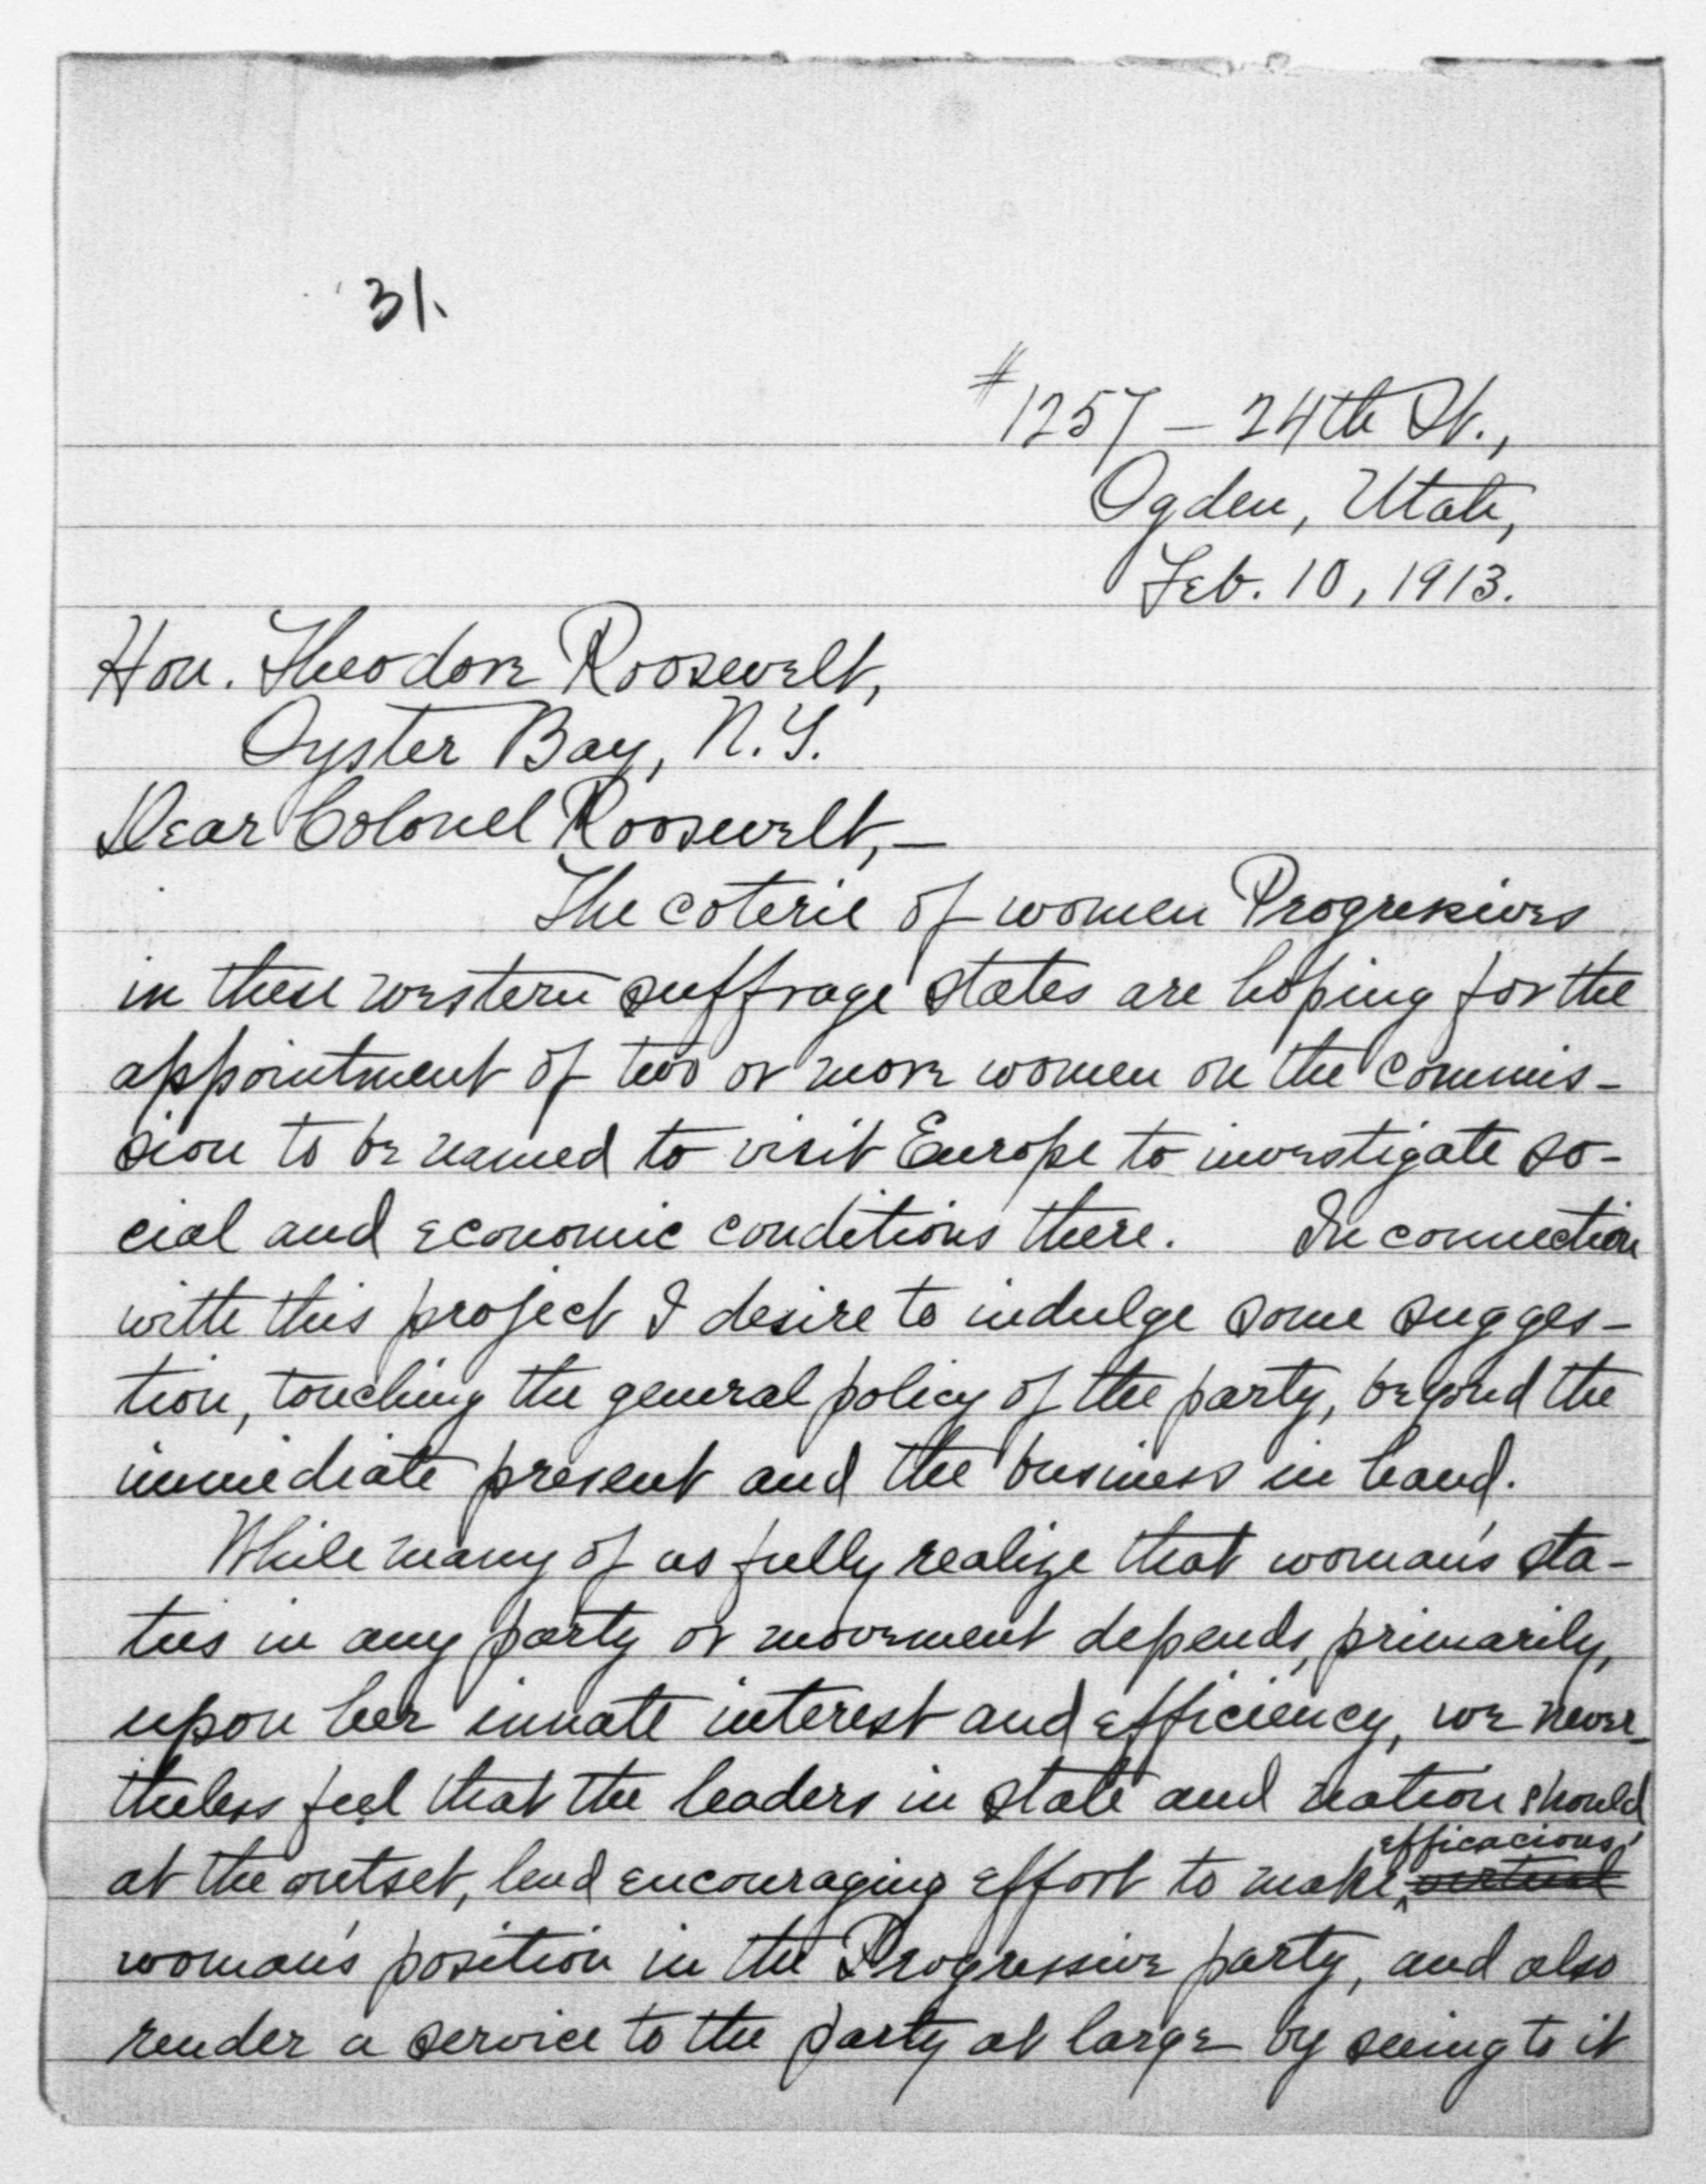 31.
#1257 – 24th St.,
Ogden, Utah,
Feb. 10, 1913.
Hon. Theodore Roosevelt,
Oyster Bay, N.Y.
Dear Colonel Roosevelt,—
The coterie of women Progressives
in these western suffrage states are hoping for the
appointment of two or more women on the commis-
sion to be named to visit Europe to investigate so-
cial and economic conditions there. In connection
with this project I desire to indulge some sugges-
tion, touching the general policy of the party, beyond the
immediate present and the business in hand.
While many of us fully realize that woman's sta-
tus in any party or movement depends, primarily,
upon her innate interest and efficiency, we never-
theless feel that the leaders in state and nation should,
efficacious
at the outset, lend encouraging effort to make virtual
woman's position in the Progressive party, and also
render a service to the party at large by seeing to it